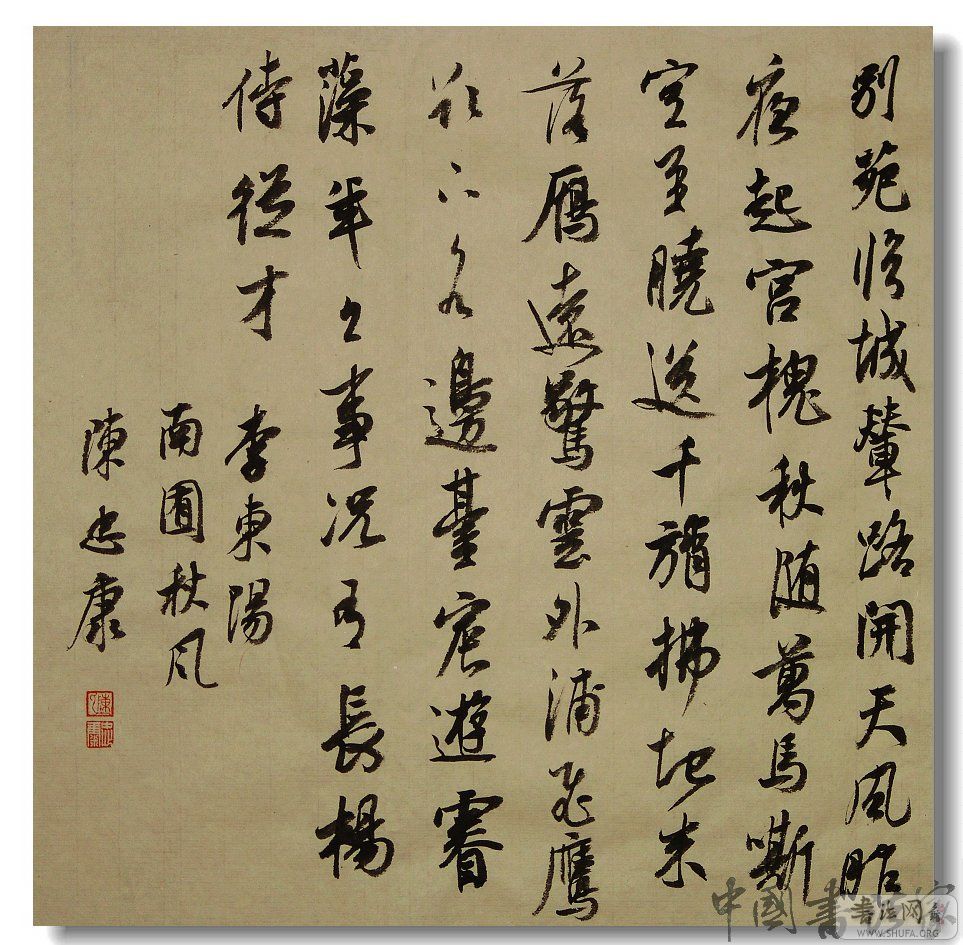 別苑臨城輦路開天風昨
夜起宮槐秋随萬馬嘶
空至曉送千旓拂地来
落鴈遠驚雲外浦飛鷹
欲下水邊臺宸遊睿
藻年々事況有長楊
侍從才 李東陽
南囿秋風
陳忠康
中國書法家
书法网
WWW.SHUFA.ORG